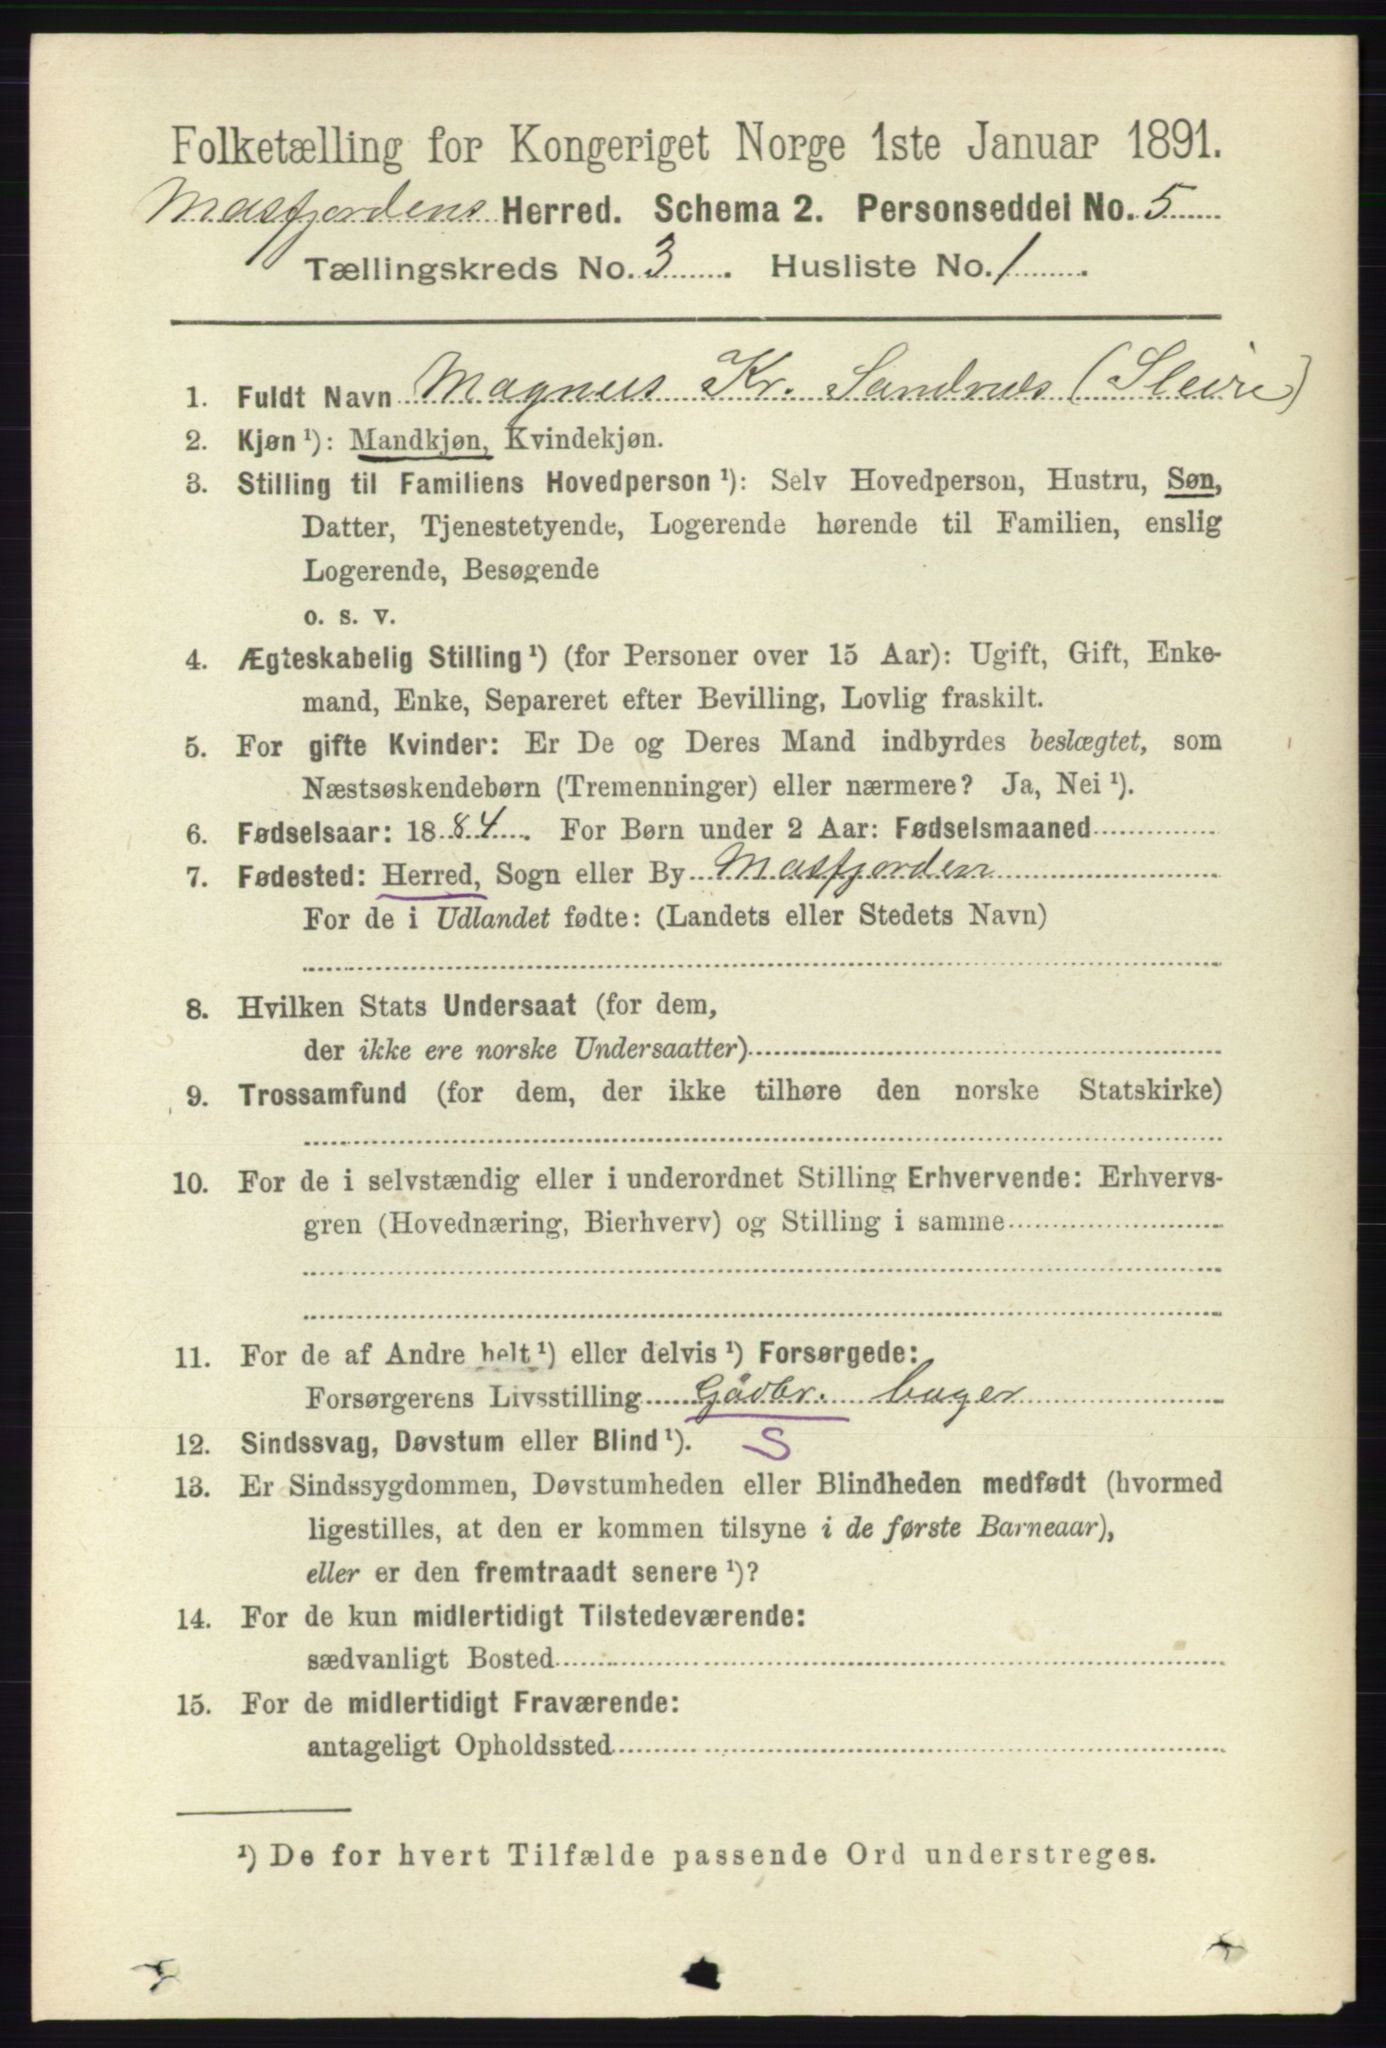 Folketælling for Kongeriget Norge 1ste Januar 1891.
Masfjordens Herred. Schema 2. Personseddel No. 5
Tællingskreds No. 3. Husliste No. 1
1. Fuldt Navn Magnus Kr. Sandnæs (Sleire)
2. Kjøn ¹): Mandkjøn, Kvindekjøn.
3. Stilling til Familiens Hovedperson ¹): Selv Hovedperson, Hustru, Søn,
Datter, Tjenestetyende, Logerende hørende til Familien, enslig
Logerende, Besøgende
o. s. v.
4. Ægteskabelig Stilling ¹) (for Personer over 15 Aar): Ugift, Gift, Enke-
mand, Enke, Separeret efter Bevilling, Lovlig fraskilt.
5. For gifte Kvinder: Er De og Deres Mand indbyrdes beslægtet, som
Næstsøskendebørn (Tremenninger) eller nærmere? Ja, Nei ¹).
6. Fødselsaar: 1884. For Børn under 2 Aar: Fødselsmaaned
7. Fødested: Herred, Sogn eller By Masfjorden
For de i Udlandet fødte: (Landets eller Stedets Navn)
8. Hvilken Stats Undersaat (for dem,
der ikke ere norske Undersaatter)
9. Trossamfund (for dem, der ikke tilhøre den norske Statskirke)
10. For de i selvstændig eller i underordnet Stilling Erhvervende: Erhvervs-
gren (Hovednæring, Bierhverv) og Stilling i samme
11. For de af Andre helt ¹) eller delvis ¹) Forsørgede:
Forsørgerens Livsstilling Gådbr. buger
12. Sindssvag, Døvstum eller Blind ¹). S
13. Er Sindssygdommen, Døvstumheden eller Blindheden medfødt (hvormed
ligestilles, at den er kommen tilsyne i de første Barneaar),
eller er den fremtraadt senere ¹)?
14. For de kun midlertidigt Tilstedeværende:
sædvanligt Bosted
15. For de midlertidigt Fraværende:
antageligt Opholdssted
¹) De for hvert Tilfælde passende Ord understreges.